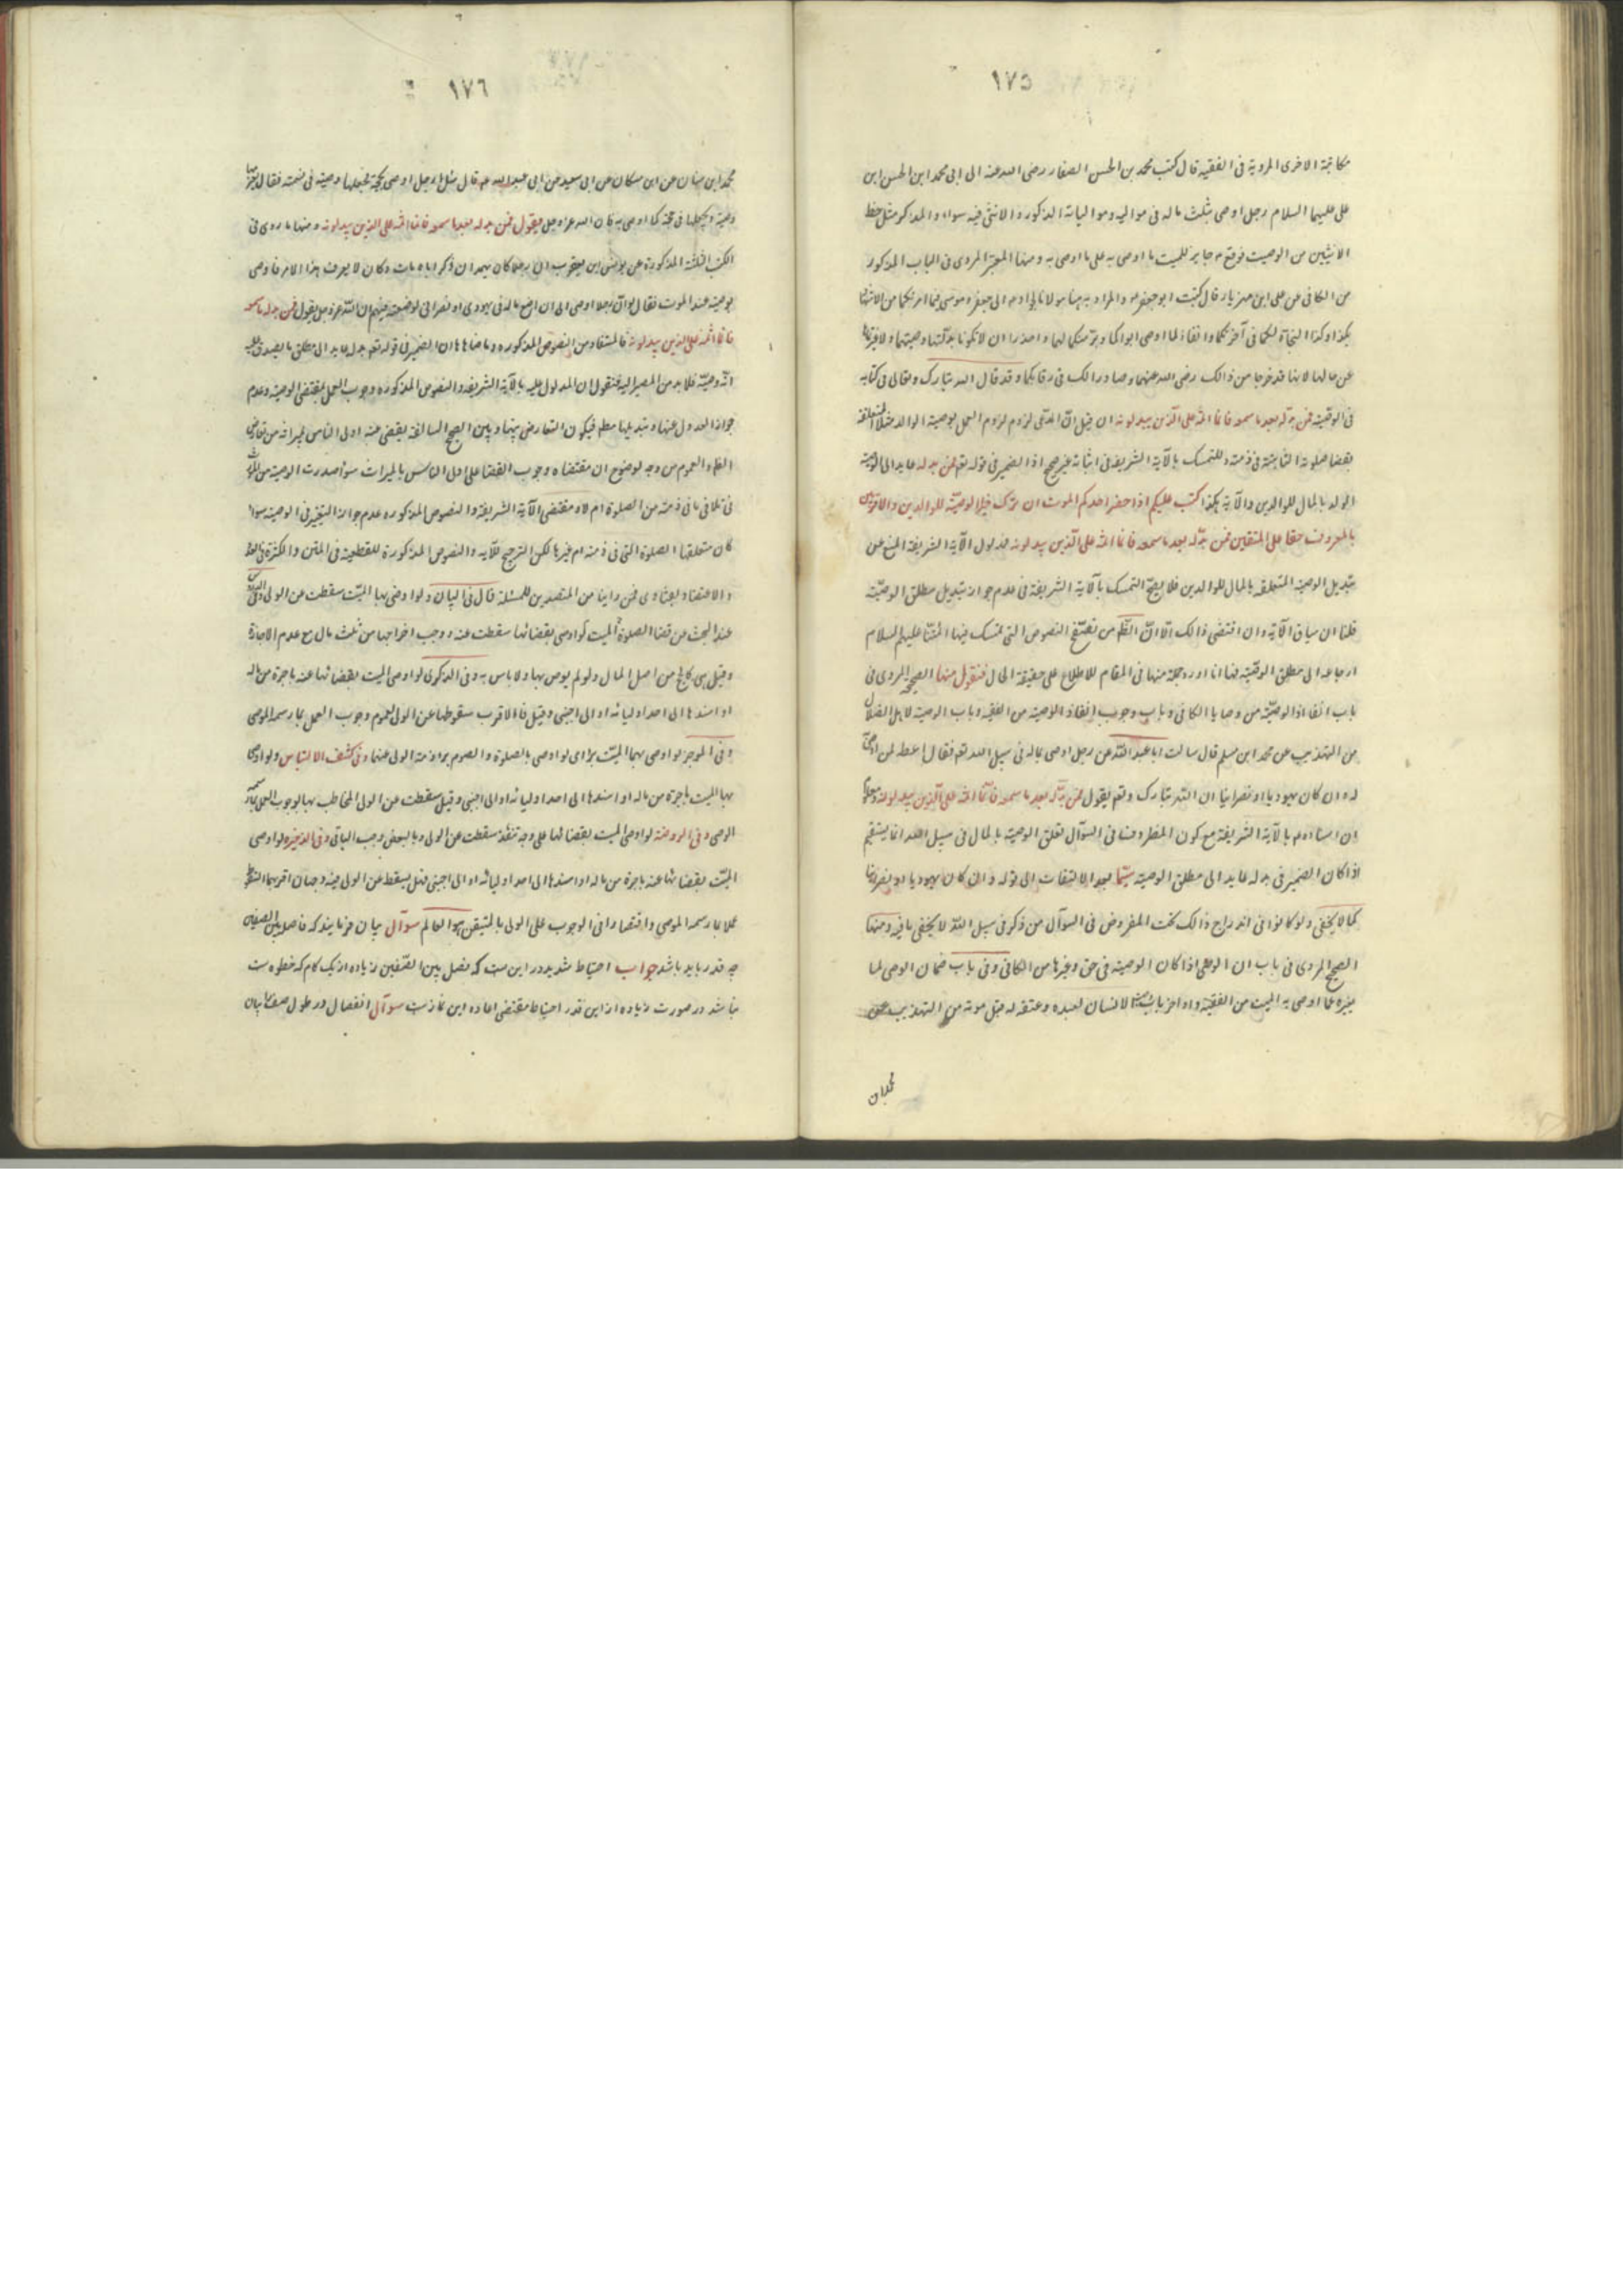 ١٧٥
مكاتبة الاخرى المروية فى الفقيه قال كتب محمد بن الحسن الصفار رضى الله عنه الى ابى محمد ابن الحسن ابن
على عليهما السلام رجل اوصى بثلث ماله فى مواليه وموالياته الذكور والانثى فيه سواء او للذكر مثل حظ
الانثيين من الوصيت فوقع ع جايز للميت ما اوصى به على ما اوصى به ومنها المعتبر المروى فى الباب المذكور
من الكافى عن على ابن مهزيار قال كتب ابو جعفر والمراد به الى جعفر وموسى فيما امرتكما من الاشهاد
بكذا وكذا النجاة لكما فى آخرتكما وانفاذ لما اوصى ابواكما وبر منكما لهما واحذرا ان لا تكونا بدلتما وصيتهما ولا غيرتماها
عن حالها لانهما قد خرجا من ذالك رضى الله عنهما وصار ذالك فى رقابكما وقد قال الله تبارك وتعالى فى كتابه
فى الوصية فمن بدله بعد ما سمعه فانما اثمه على الذين يبدلونه ان قيل انّ المدعى لزوم العمل بوصية الوالد المتعلقة
بقضا صلوته الثابتة فى ذمته والتمسك بالآية الشريفة فى اثباته غير صحيح اذ الضمير فى قوله تعم فمن بدله عايد الى الوصية
بالمال للوالدين والآية هكذا كتب عليكم اذا حضر احدكم الموت ان ترك خيرا الوصيّة للوالدين والاقربين
بالمعروف حقا على المتقين فمن بدّله بعد ما سمعه فانما اثمه على الّذين يبدلونه فمدلول الآية الشريفة المنع عن
تبديل الوصية المتعلقة بالمال للوالدين فلا يصحّ التمسك بالآية الشريفة فى عدم جواز تبديل مطلق الوصيّة
قلنا ان سياق الآية وان اقتضى ذالك الّا انّ الظّم من تصفّح النصوص التى تمسك فيها ائمتنا عليهم السلام
ارجاعه الى مطلق الوصيّة فها انا اورد جملة منها فى المقام للاطلاع على حقيقة الحال فنقول منها الصحيح المروى فى
باب انفاذ الوصيّة من وصايا الكافى وباب وجوب انفاذ الوصية من الفقيه وباب الوصية لاهل الضلال
من التهذيب عن محمد ابن مسلم قال سالت ابا عبد اللّه عن رجل اوصى بماله فى سبيل الله تعم فقال اعطه لمن اوصى
له وان كان يهوديا او نصرانيا ان اللّه تبارك وتعم يقول فمن بدّله بعد ما سمعه فانّما اثمه على الّذين يبدلونه ومعلوم
ان استناده بالآية الشريفة مع كون المفروض فى السؤال تعلق الوصية بالمال فى سبيل الله انما يستقيم
اذا كان الضمير فى بدله عايد الى مطلق الوصية سيّما بعد الالتفات الى قوله وان كان يهوديا او نصرانيا
كما لا يخفى ولو كانوا فى اندراج ذالك تحت المفروض فى السؤال من ذكر فى سبيل اللّه لا يخفى ما فيه ومنها
الصحيح المروى فى باب ان الوصى اذا كان الوصية فى حق وغيرها من الكافى وفى باب ضمان الوصى لما
يغيره عما اوصى به الميت من الفقيه واواخر باب الانسان لعبده وعتقه له قبل موته من التهذيب عن
محمد ابن
١٧٦
محمد ابن سنان عن ابن مسكان عن ابى سعيد عن ابى عبد الله ع قال سئل عن رجل اوصى بحجة فجعلها وصيه فى نسمة فقال يغرمها
وصيه ويجعلها فى حجة كما اوصى به فان الله عز وجل يقول فمن بدله بعد ما سمعه فانما اثمه على الذين يبدلونه ومنها ما روى فى
الكتب الثلثة المذكورة عن يونس ابن يعقوب ان رجلا كان بهمدان ذكر اباه مات وكان لا يعرف هذا الامر فاوصى
بوصية عند الموت فقال لو انّ رجلا اوصى الى ان اضع ماله فى يهودى او نصرانى لوضعته فيهم ان اللّه عز وجل يقول فمن بدله بعد ما سمعه
فانما اثمه على الذين يبدلونه فالمستفاد من النصوص المذكورة وما ضاهاها ان الضمير فى قوله تعم بدله عايد الى مطلق ما يصدق عليه
انّه وصيّة فلابد من المصير اليه فنقول ان المدلول عليه بالآية الشريفة والنصوص المذكورة وجوب العمل بمقتضى الوصية وعدم
جواز العدول عنها وتبديلها مطم فيكون التعارض بينهما وبين الصحيح السالفة يقضى عنه اولى الناس بميراثه من تعارض
العموم من وجه لوضوح ان مقتضاه وجوب القضا على اولى الناس بالميراث سواء صدرت الوصية من الميت
فى تلافى ما فى ذمته من الصلوة ام لا ومقتضى الآية الشريفة والنصوص المذكوره عدم جواز التغيير فى الوصية سواء
كان متعلقها الصلوة التى فى ذمته ام غيرها لكن الترجيح للآية والنصوص المذكورة للقطعية فى المتن والكثرة فى العدد
والاعتضاد بفتاوى من راينا من المتصدين للمسئلة قال فى البيان ولو اوصى بها الميّت سقطت عن الولى وفى
عند البحث عن قضا الصلوة الميت لو اوصى بقضائها سقطت عنه ووجب اخراجها من ثلث مال مع عدم الاجازة
وقيل هى كالحج من اصل المال ولو لم يوص بها ولا باس به وفى الذكرى لو اوصى الميت بقضائها عنه باجرة من ماله
او اسندها الى احد اوليائه او الى اجنبى وقيل فالاقرب سقوطها عن الولى لعموم وجوب العمل بما رسمه الموصى
وفى الموجز لو اوصى بهما الميّت برائ لو اوصى بالصلوة والصوم براء ذمة الولى عنهما وفى كشف الالتباس ولو اوصى
بها الميت باجرة من ماله او اسندها الى احد اوليائه او الى اجنبى وقيل سقطت عن الولى المخاطب بها لوجوب العمل بما رسمه
الموصى وفى الروضة لو اوصى الميت بقضائها على وجه تنفذ سقطت عن الولى وبالبعض وجب الباقى وفى الذخيره لو اوصى
الميّت بقضائها عنه باجرة من ماله او اسندها الى احد اوليائه او الى اجنبى فهل يسقط عن الولى فيه وجهان اقربهما السقوط
عملا بما رسمه الموصى واقتصارا فى الوجوب على الولى بالمتيقن هو العالم سوآل بيان فرمايند كه فاصله بين الصفين
چه قدر بايد باشد جواب احتياط شديد در اين ست كه فصل بين الصّفين زياده از يك كام كه خطوه ست
نباشد در صورت زياده از اين قدر احتياط مقتضى اعاده اين نماز ست سوآل انفصال در طول صف